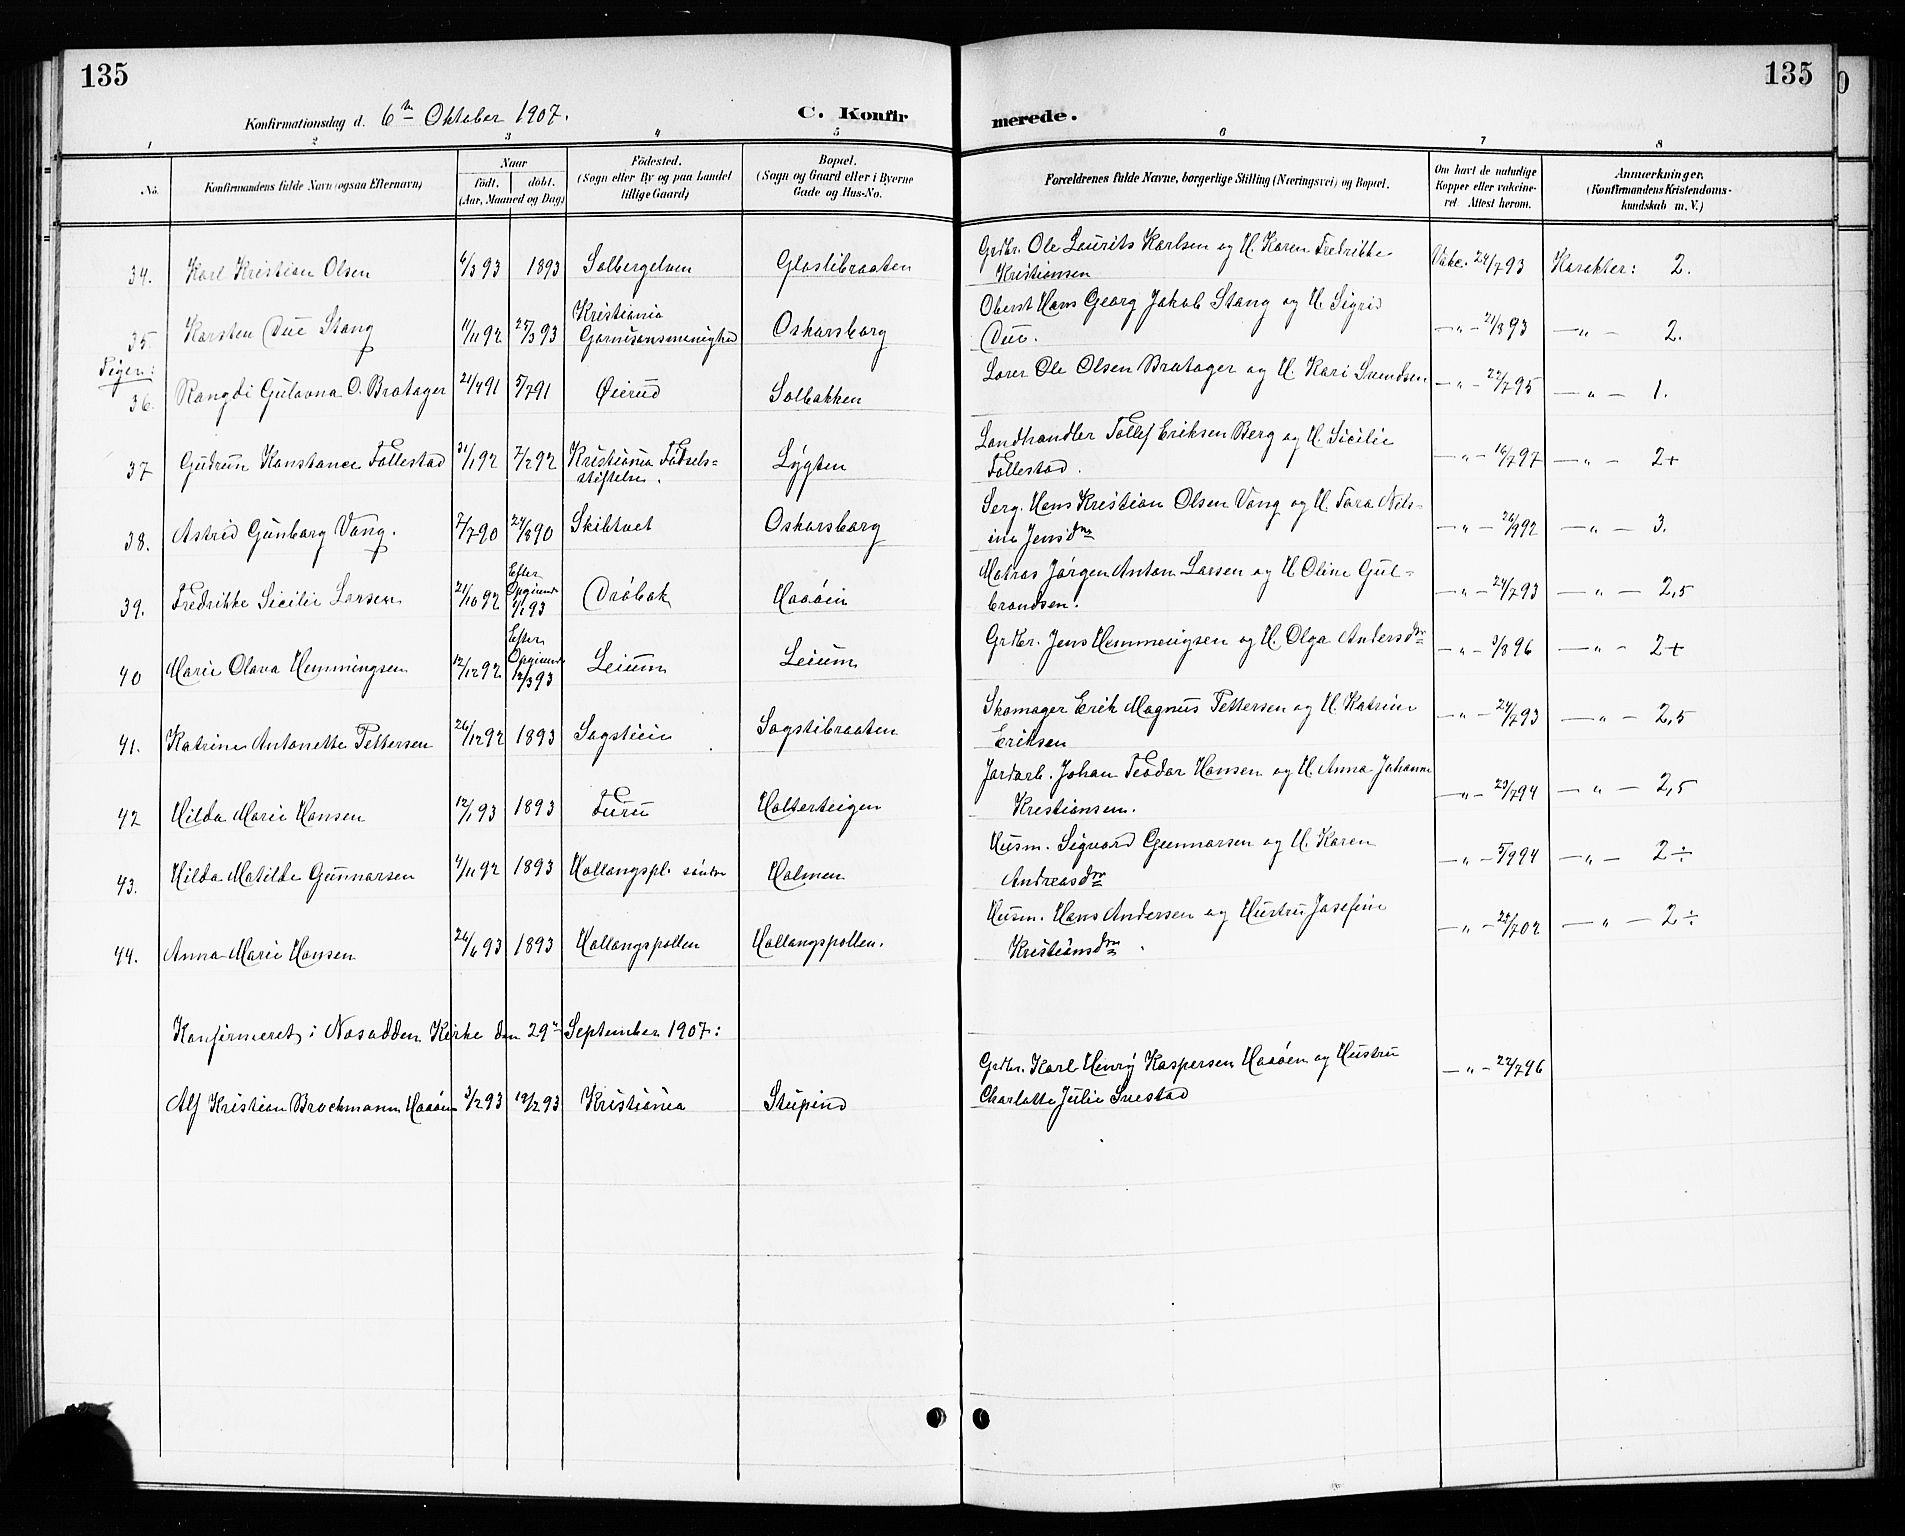 135
135
Konfirmationsdag d. 6te Oktober 1907.
C. Konfirmerede.
1 2 3 4 5 6 7 8
No.
Konfirmandens fulde Navn (ogsaa Efternavn)
Naar
født. døbt.
(Aar, Maaned og Dag)
Fødested.
(Sogn eller By og paa Landet
tillige Gaard)
Bopæl.
(Sogn og Gaard eller i Byerne
Gade og Hus-No.
Forældrenes fulde Navne, borgerlige Stilling (Næringsvei) og Bopæl.
Om havt de naturlige
Kopper eller vakcine-
ret Attest herom.
Anmærkninger.
(Konfirmandens Kristendoms-
kundskab m. V.)
34. Karl Kristian Olsen 6/3 93 1893 Solbergelven Glostibraaten Grdbr. Ole Laurits Karlsen og H. Karen Fredrikke
Kristiansen Vakc. 24/7 93 Karakter: 2.
35. Karsten Due Stang 11/11 92 25/3 93 Kristiania
Garnisonsmenighed Oskarsborg Oberst Hans Georg Jakob Stang og H. Sigrid
Due. — " — 21/8 93 — " — 2.
Piger:
36. Rangdi Gulovna O. Bratager 21/4 91 5/7 91 Øierud Solbakken Lorer Ole Olsen Bratager og H. Kari Svendsen — " — 22/7 95 — " — 1.
37 Gudrun Konstance Follestad 31/1 92 7/2 92 Kristiania Fødsels=
stiftelse. Lygten Landhandler Tollef Eriksen Berg og H. Sicilie
Follestad. — " — 16/7 97 — " — 2+
38. Astrid Gunborg Vang. 7/7 90 24/8 90 Skibtvet Oskarsborg Serg. Hans Kristian Olsen Vang og H. Tora Nils-
ine Jensdtr — " — 26/9 92 — " — 3.
39. Fredrikke Sicilie Larsen 21/10 92 Efter
Opgivende
1/1 93 Drøbak Haaøen Matros Jørgen Anton Larsen og H. Oline Gul=
brandsen. — " — 24/7 93 — " — 2,5
40 Marie Olava Hemmingsen 12/12 92 Efter
Opgivende
12/3 93 Leium Leium Grdbr. Jens Hemmingsen og H. Olga Andersdtr — " — 3/8 96 — " — 2+
41. Katrine Antonette Pettersen 26/12 92 1893 Sagstien Sagstibraaten Skomager Erik Magnus Pettersen og H. Katrine
Eriksen — " — 24/7 93 — " — 2,5
42 Hilda Marie Hansen 12/1 93 1893 Furu Holterteigen Jordarb. Johan Teodor Hansen og H. Anna Johanne
Kristiansen. — " — 23/7 94 — " — 2,5
43. Hilda Matilde Gunnarsen 4/11 92 1893 Hallangspl. søndre Holmen Husm. Sigvard Gunnarsen og H. Karen
Andreasdtr — " — 5/9 94 — " — 2÷
44. Anna Marie Hansen 26/6 93 1893 Hallangspollen Hallangspollen. Husm. Hans Andersen og Hustru Josefine
Kristiansdtr. — " — 22/7 02 — " — 2÷
Konfirmeret i Nesodden Kirke den 29de September 1907:
Alf Kristian Brochmann Haaøen 3/2 93 19/2 93 Kristiania Stupind Grdbr. Karl Henry Kaspersen Haaøen og Hustru
Charlotte Julie Svestad — " — 22/7 96